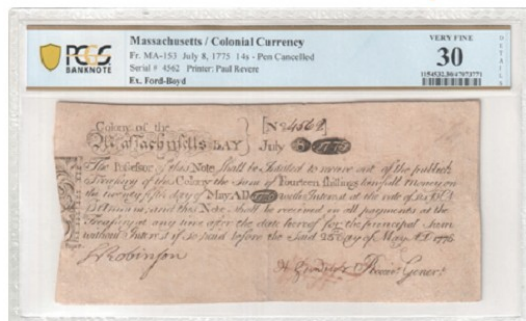 PCGS
BANKNOTE
Massachusetts / Colonial Currency
Fr. MA-153 July 8, 1775 14s - Pen Cancelled
Serial # 4562 Printer: Paul Revere
Ex. Ford-Boyd
VERY FINE
30
DETAILS
Colony of the
Massachusetts BAY
[N° 4562]
July
The Possessor of this Note shall be Intitled to receive out of the publick
Treasury of this Colony the Sum of Fourteen shillings lawfull money on
the twenty fifth day of May A.D. with Interest at the rate of six
Annum, and this Note shall be received in all payments at the
Treasury at any time after the date hereof for the principal Sum
without Interest if so paid before the Said 25 day of May A D 1776
Robinson
Receivr Generl